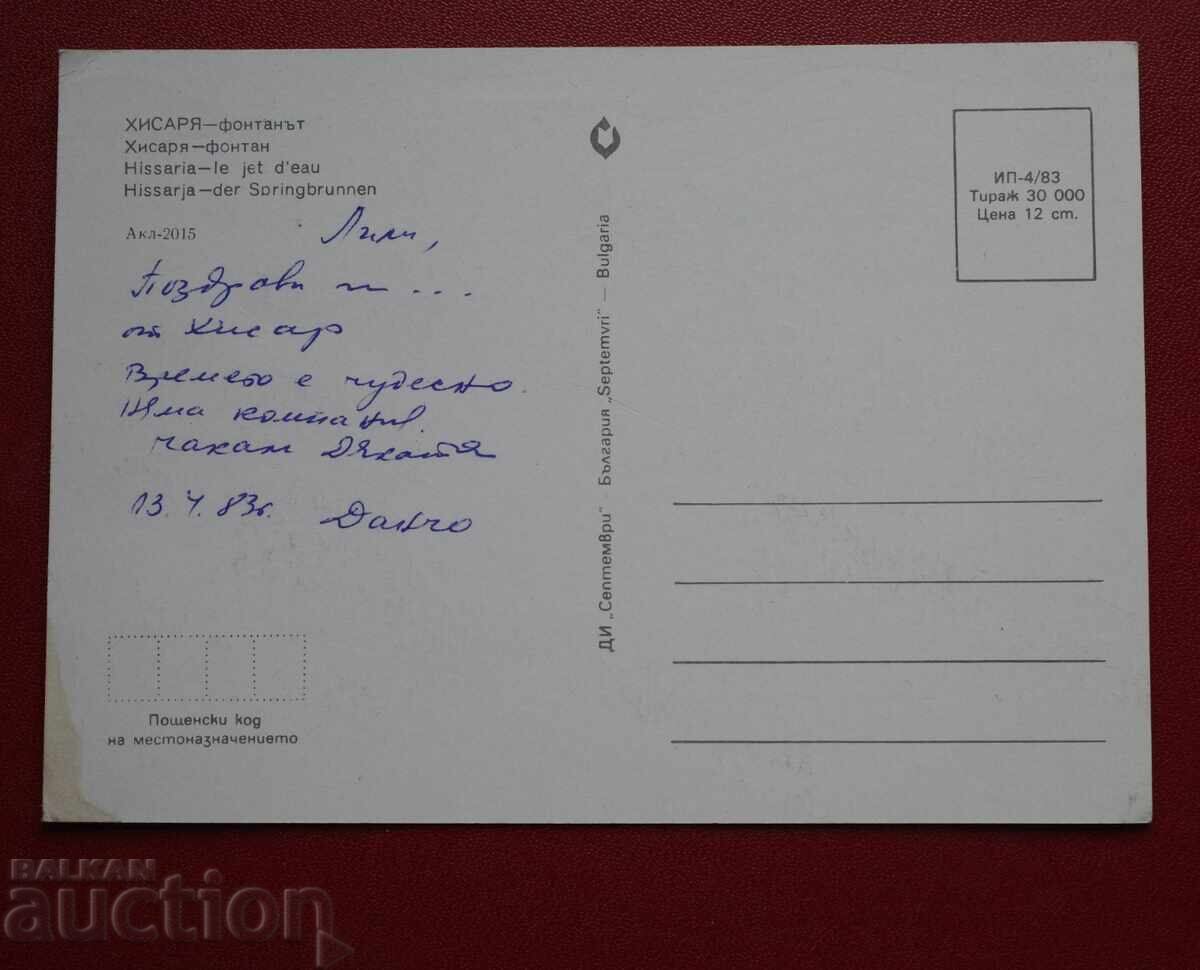 ХИСАРЯ—фонтанът
Хисаря—фонтан
Hissaria—le jet d'eau
Hissarja—der Springbrunnen
Акл-2015
Лили,
Поздрави ти ...
от Хисар
Времето е чудесно.
Има компания.
чакам
13.4.83г. Данчо
Пощенски код
на местоназначението
ДИ „Септември" - България „Septemvri" — Bulgaria
ИП-4/83
Тираж 30 000
Цена 12 ст.
BALKAN
auction